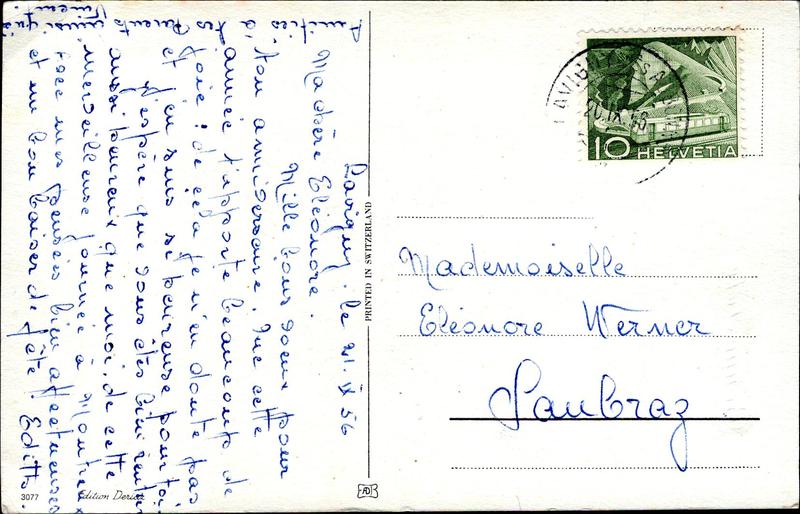 Lavigny. le 21. IX 56
Ma chère Eléonore.
Mille bons voeux pour
ton anniversaire. Que cette
année t'apporte beaucoup de
joie; de cela je n'en doute pas
et j'en suis si heureuse pour toi.
J'espère que vous êtes bien rentrés
aussi heureux que moi, de cette
merveilleuse journée à Montreux
avec mes pensées bien affectueuses
et un bon baiser de fête. Edith.
Amitiés à
tes Parents
ainsi qu'à
Vincent.
PRINTED IN SWITZERLAND
3077
Edition
LAVIGNY
20.IX.56
10 HELVETIA
Mademoiselle
Eléonore Werner
Saubraz